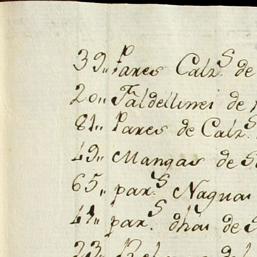 39,, Pares Calz.s de
20,, Faldellines de
81,, Pares de Calz.s
49,, Mangas de
65,, par.s Naguas
41,, par.s dhas de
23,,